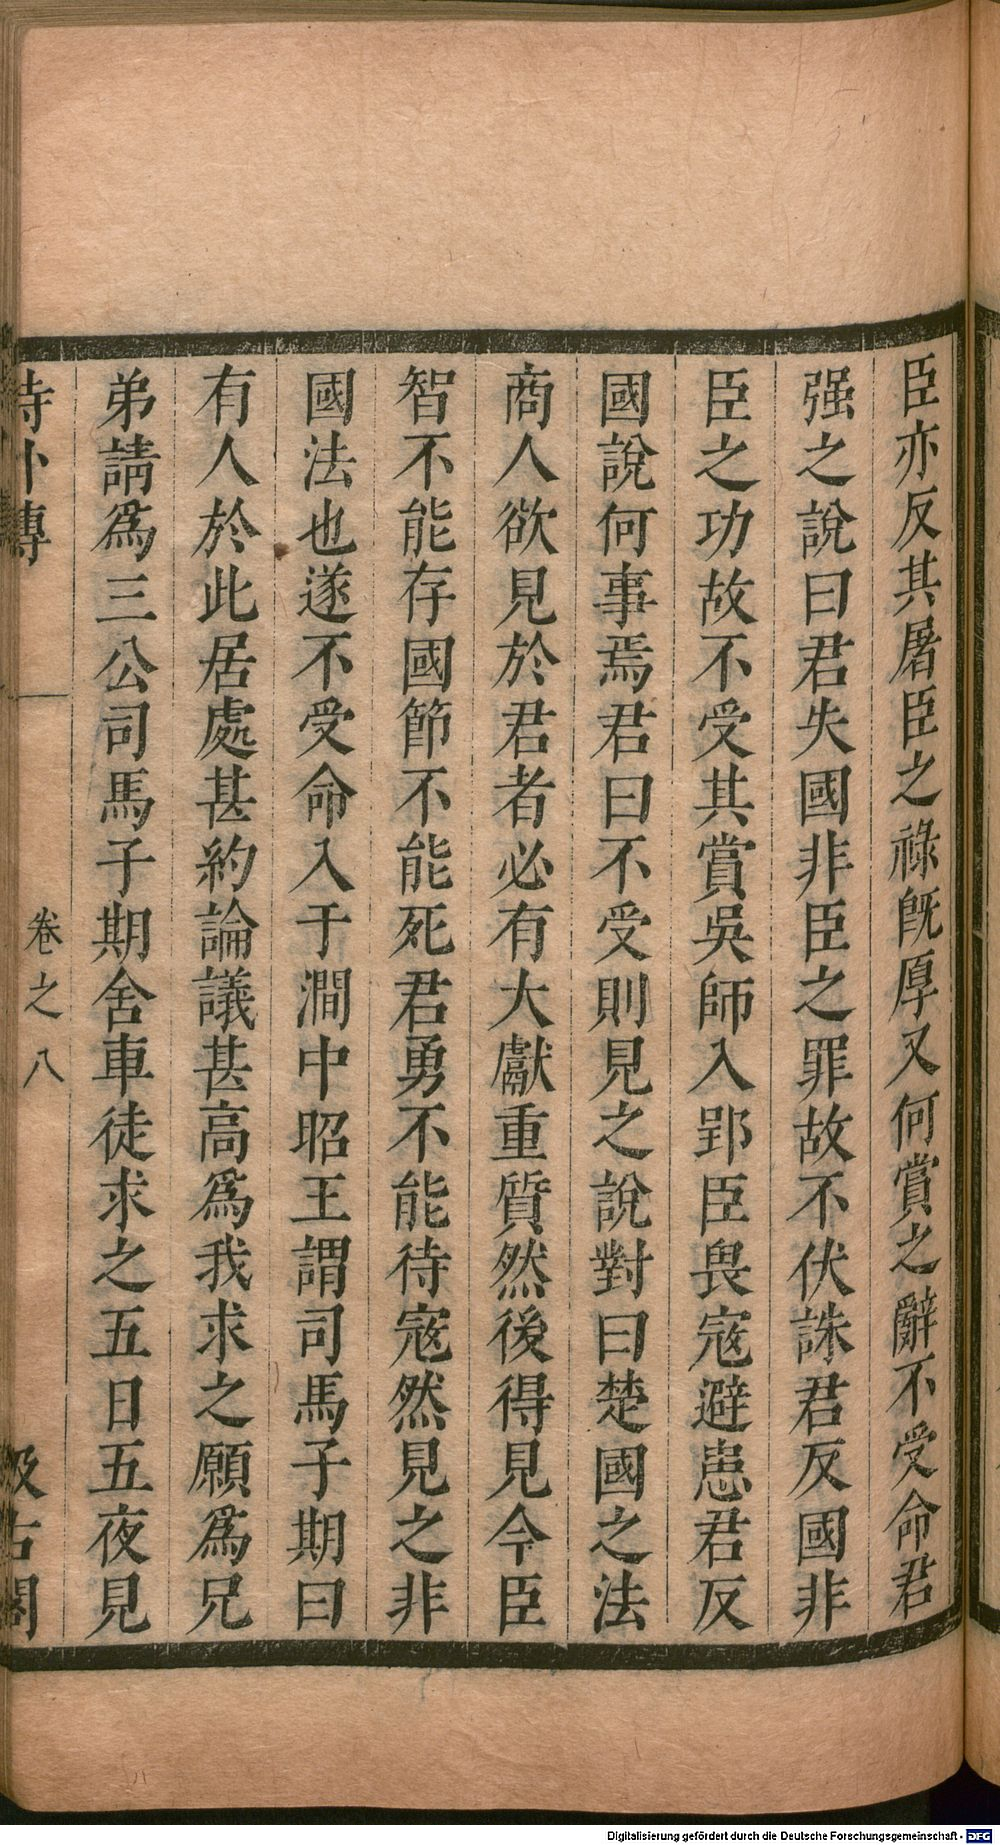 臣亦反其屠臣之祿旣厚又何賞之辭不受命君
强之說曰君失國非臣之罪故不伏誅君反國非
臣之功故不受其賞吳師入郢臣畏寇避患君反
國說何事焉君曰不受則見之說對曰楚國之法
商人欲見於君者必有大獻重質然後得見今臣
智不能存國節不能死君勇不能待寇然見之非
國法也遂不受命入于澗中昭王謂司馬子期曰
有人於此居處甚約論議甚高爲我求之願爲兄
弟請爲三公司馬子期舍車徒求之五日五夜見
詩外傳
卷之八
汲古閣
Digitalisierung gefördert durch die Deutsche Forschungsgemeinschaft - DFG